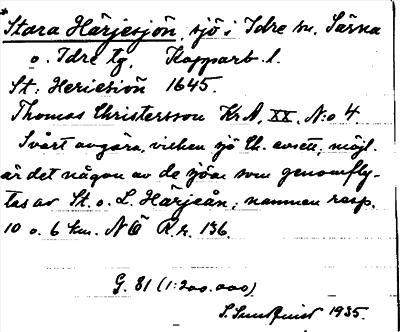 *
Stora Härjesjön, sjö i Idre sn, Särna
o. Idre tg, Kopparb. l.
St: Heriesiön 1645.
Thomas Christersson Kr A, XX, N:o 4.
Svårt avgöra, vilken sjö Ch. avsett; möjl.
är det någon av de sjöar som genomfly-
tas av St. o. L. Härjeån; namnen resp.
10 o. 6 km. NÖ R.r. 136.
G. 81 (1:200.000)
S. Sundquist 1935.